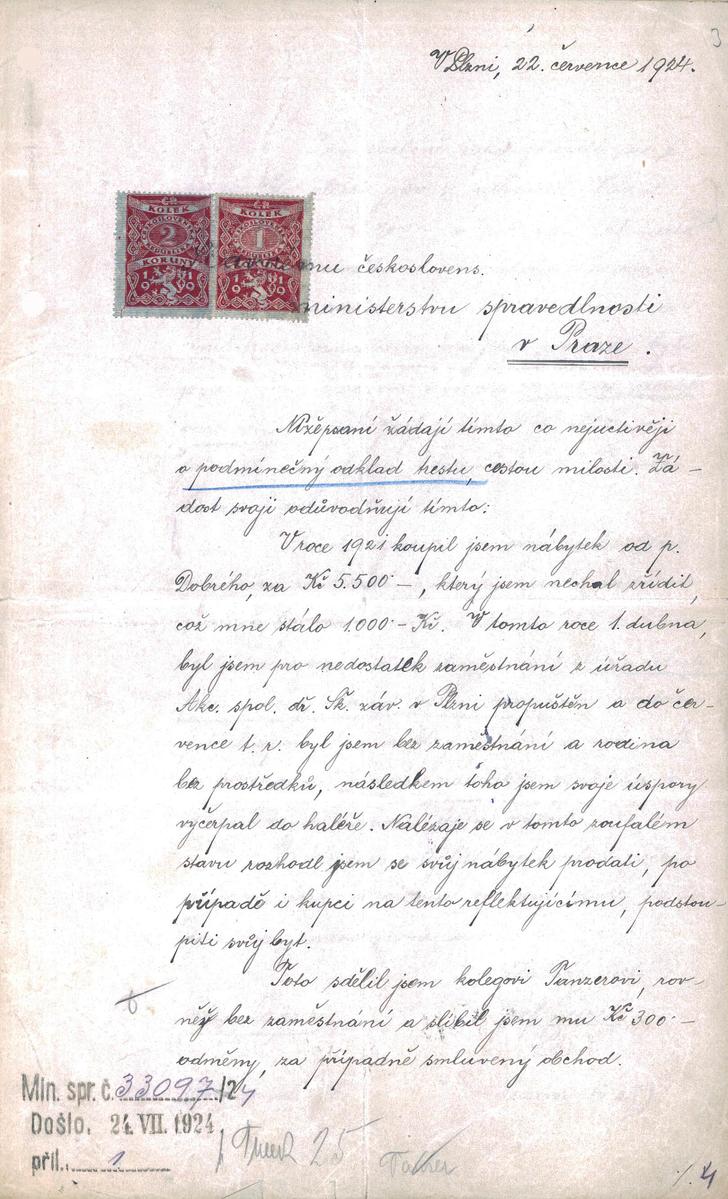 3
V Plzni, 22. července 1924.
ČR ČR
KOLEK KOLEK
2 1
KORUNY
1919 1919
anu českoslovens.
ministerstvu spravedlnosti
v Praze.
Nížepsaní žádají tímto co nejuctivěji
o podmínečný odklad trestu, cestou milosti. Žá-
dost svoji odůvodňují tímto:
V roce 1921 koupil jsem nábytek od p.
Dobrého, za Kč 5.500-, který jsem nechal zřídit,
což mne stálo 1.000- Kč. V tomto roce 1. dubna,
byl jsem pro nedostatek zaměstnání z úřadu
Akc. spol. dř. Šk. záv. v Plzni propuštěn a do čer-
vence t. r. byl jsem bez zaměstnání a rodina
bez prostředků, následkem toho jsem svoje úspory
vyčerpal do haléře. Nalézaje se v tomto zoufalém
stavu rozhodl jsem se svůj nábytek prodati, po
případě i kupci na tento reflektujícímu, podstou-
piti svůj byt.
Toto sdělil jsem kolegovi Tanzerovi, rov-
něž bez zaměstnání a slíbil jsem mu Kč 300-
odměny, za případně smluvený obchod.
Min. spr. č. 33097/24
Došlo. 24. VII. 1924
příl. 1
25
./. 4